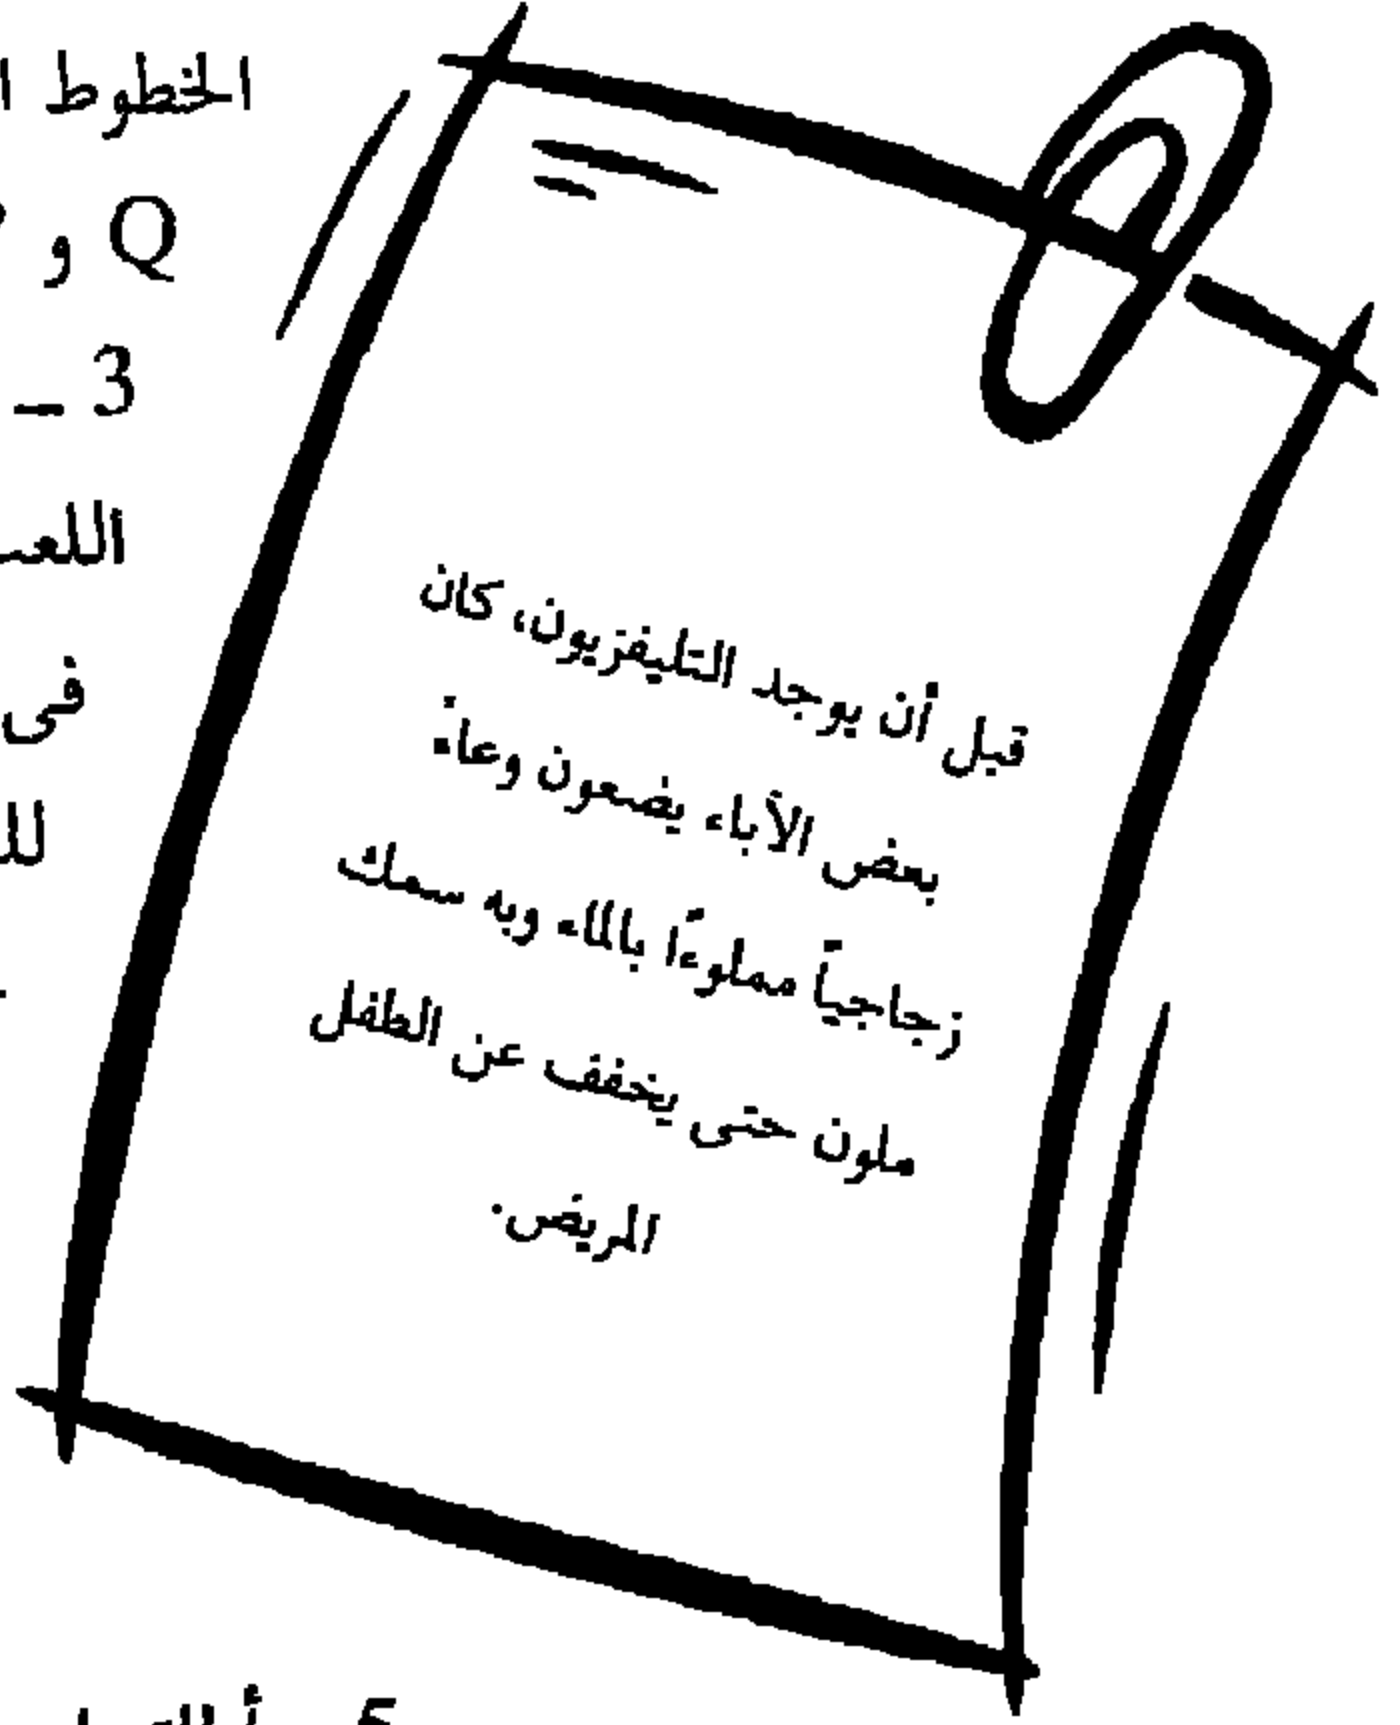 الخطوط
Q و
3 –
فى
قبل أن يوجد التليفزيون، كان
بعض الآباء يضعون وعاءً
زجاجياً مملوءًا بالماء وبه سمك
ملون حتى يخفف عن الطفل
المريض.